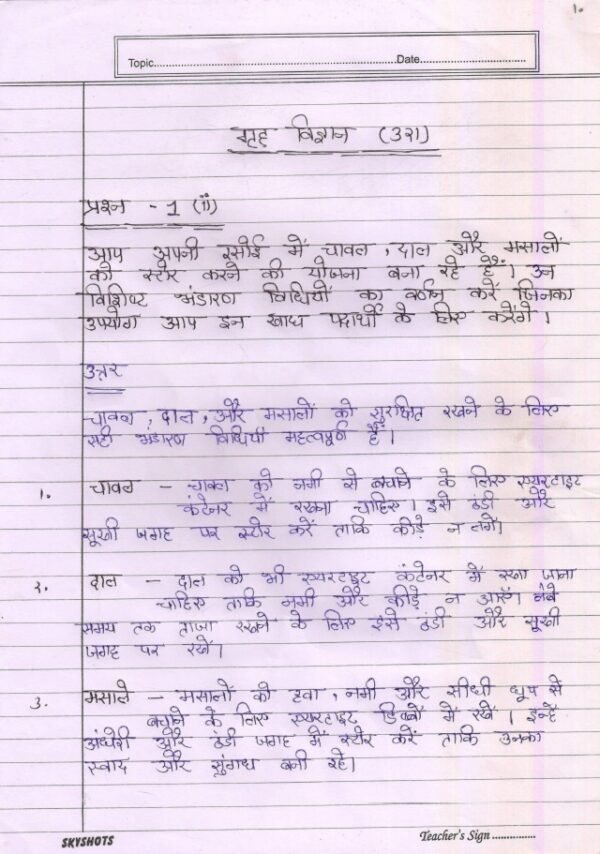 1.
Topic........................Date........................
गृह विज्ञान (321)
प्रश्न - 1 (ii)
आप अपनी रसोई में चावल, दाल और मसालों
को स्टोर करने की योजना बना रहे हैं। उन
विशिष्ट भंडारण विधियों का वर्णन करें जिनका
उपयोग आप इन खाद्य पदार्थों के लिए करेंगे।
उत्तर
चावल, दाल, और मसालों को सुरक्षित रखने के लिए
सही भंडारण विधियाँ महत्वपूर्ण हैं।
1. चावल - चावल को नमी से बचाने के लिए एयरटाइट
कंटेनर में रखना चाहिए। इसे ठंडी और
सूखी जगह पर स्टोर करें ताकि कीड़े न लगें।
2. दाल - दाल को भी एयरटाइट कंटेनर में रखा जाना
चाहिए ताकि नमी और कीड़े न आएँ। लंबे
समय तक ताजा रखने के लिए इसे ठंडी और सूखी
जगह पर रखें।
3. मसाले - मसालों को हवा, नमी और सीधी धूप से
बचाने के लिए एयरटाइट डिब्बों में रखें। इन्हें
अंधेरी और ठंडी जगह में स्टोर करें ताकि उनका
स्वाद और सुगंध बनी रहे।
SKYSHOTS
Teacher's Sign...............